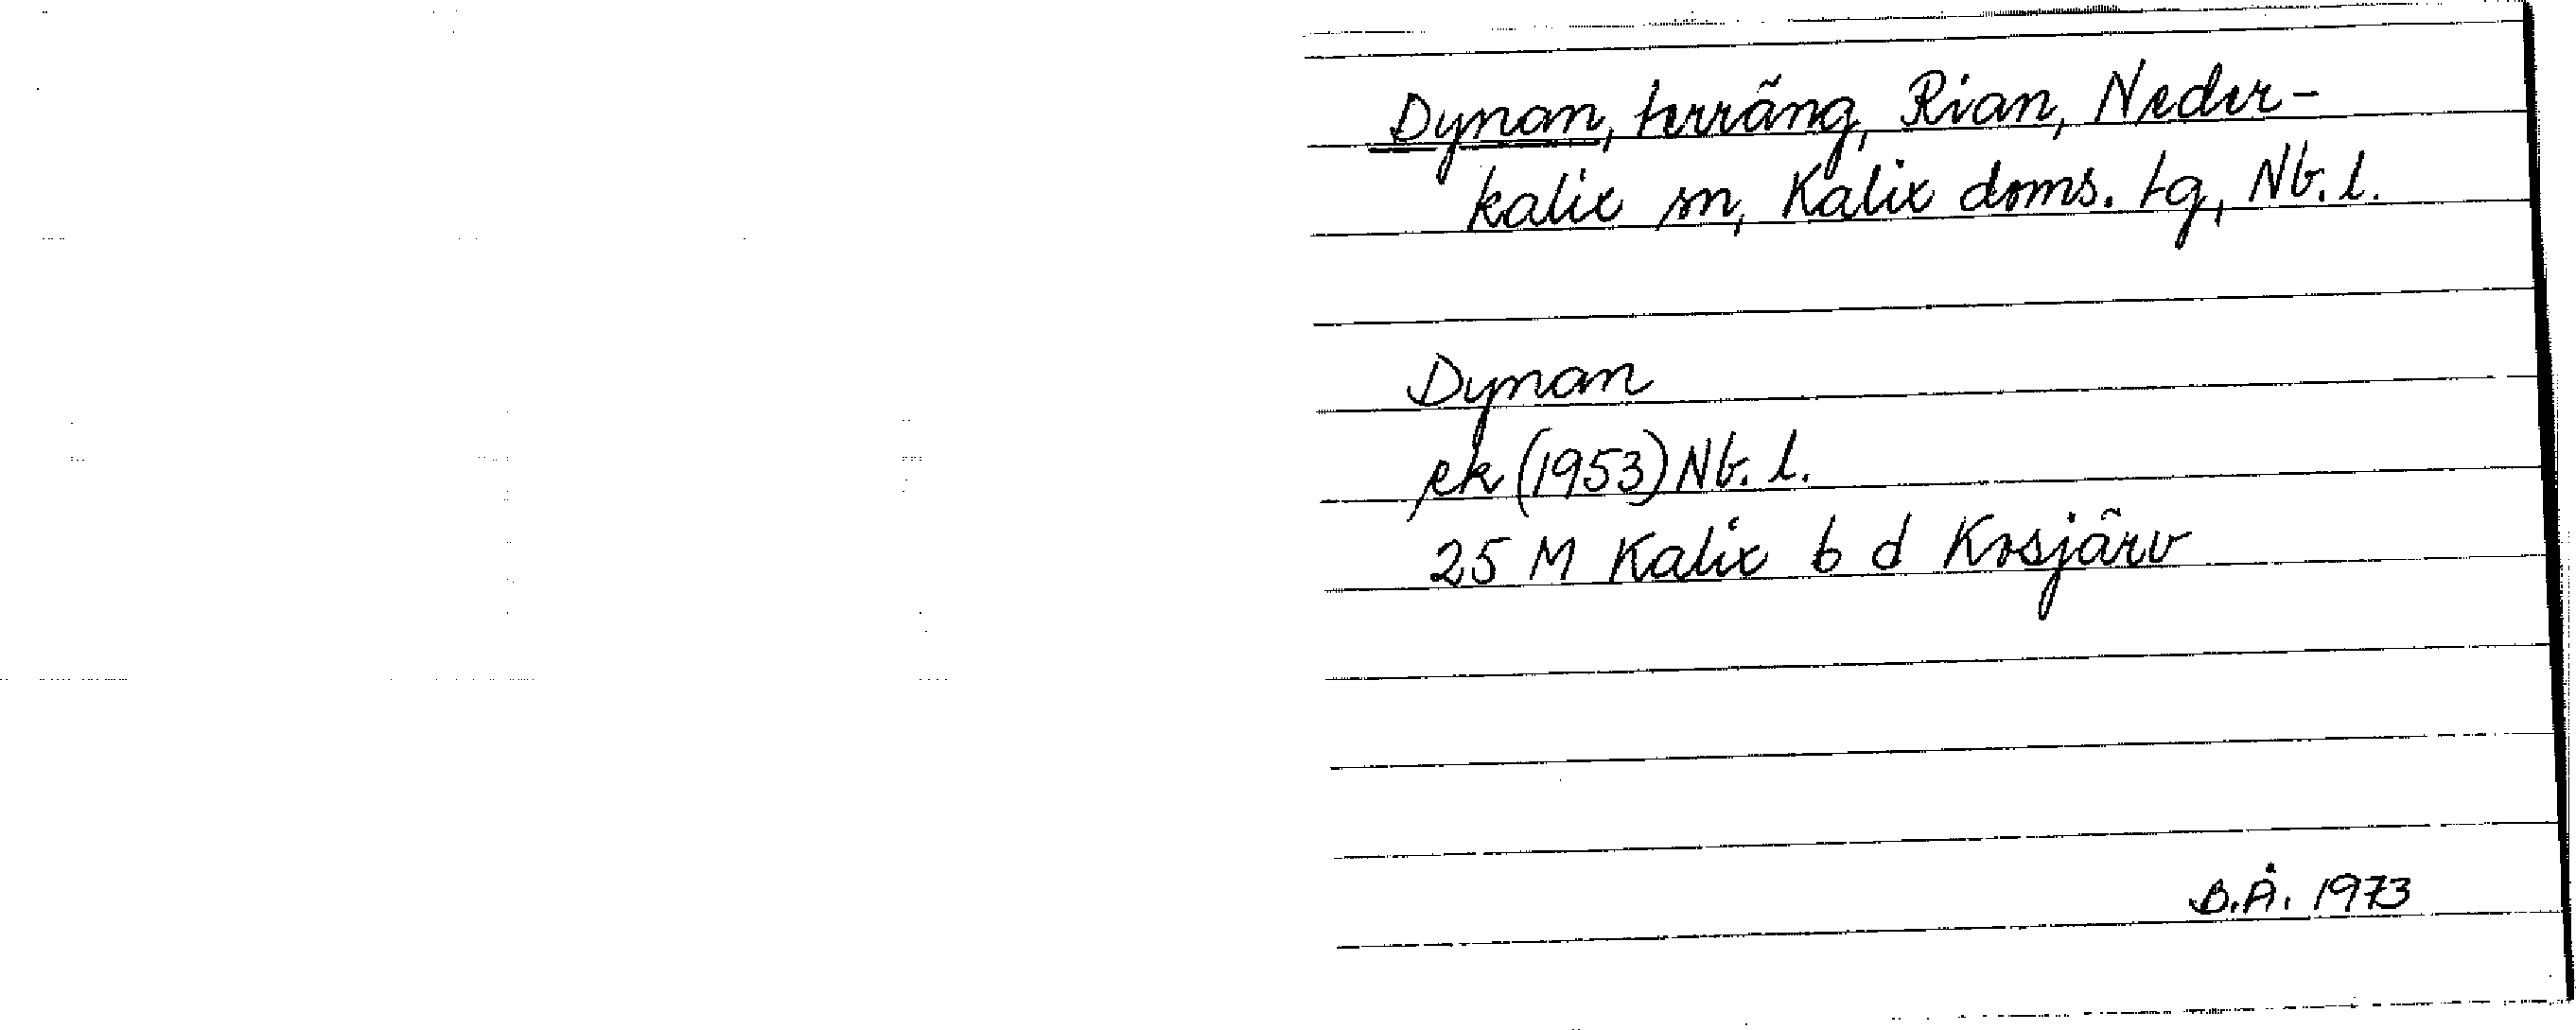 Dynan, terräng, Rian, Neder-
kalix sn, Kalix doms. tg, Nb. l.
Dynan
ek (1953) Nb. l.
25 M Kalix b d Kosjärv
B.Å. 1973